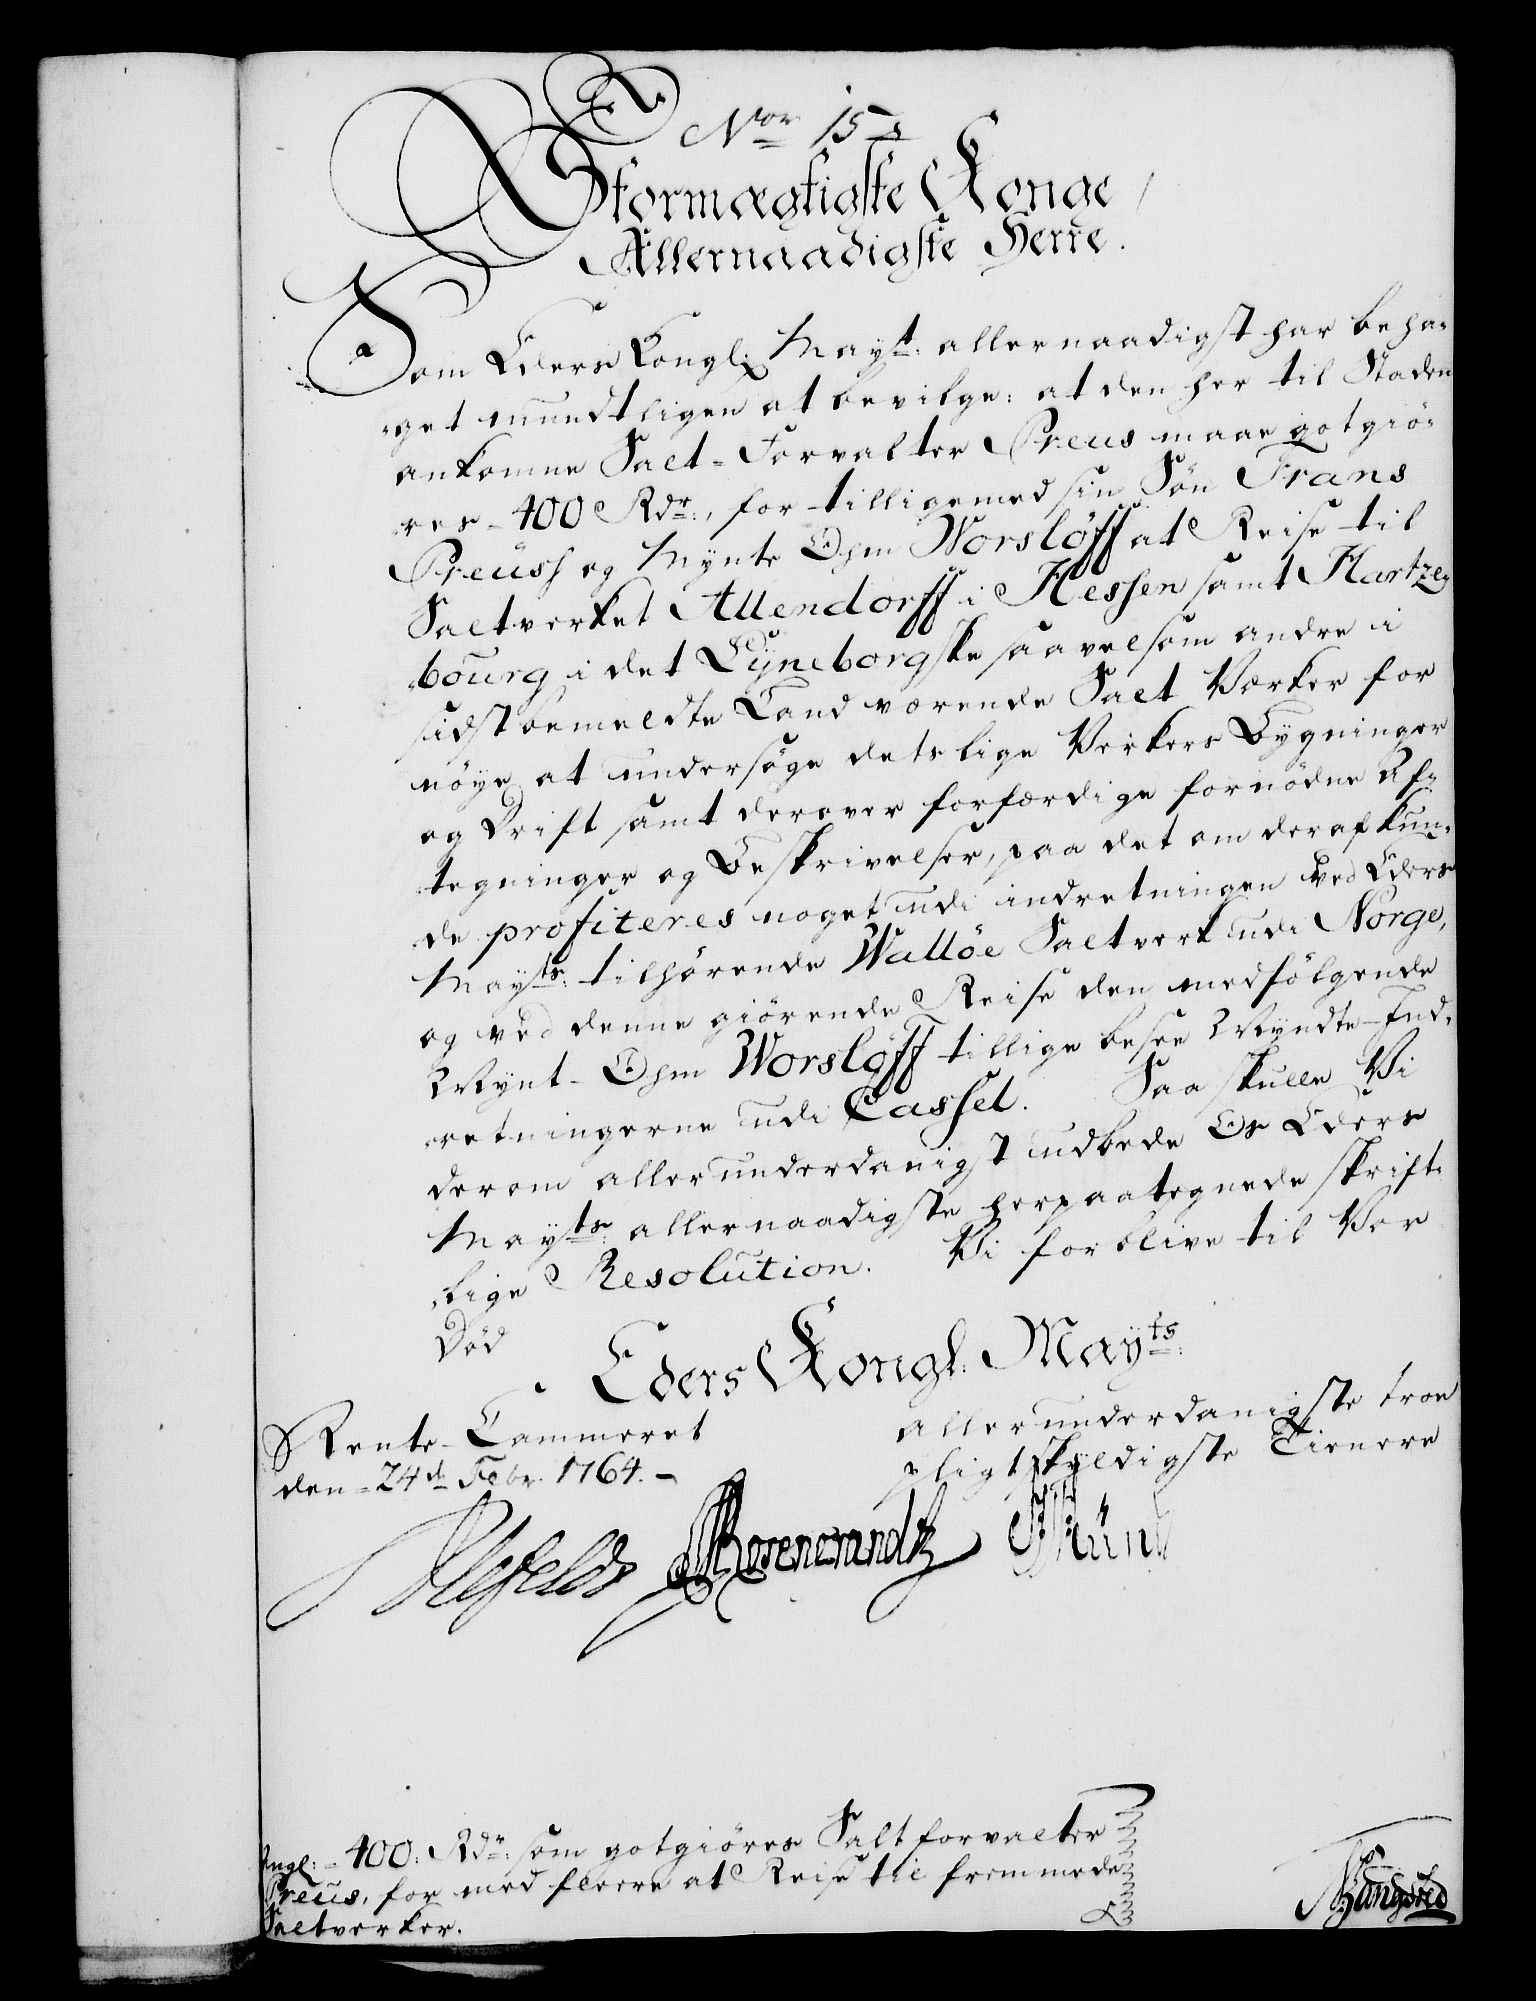 Nor 15
Stormægtigste Konge
Allernaadigste Herre.
Som Eders Kongl: Mayt: allernaadigst har beha-
-get mundtligen at bevilge: at den her til Staden
ankomne Salt-Forvalter Preus maae gotgiö-
res 400 Rdr:, for tilligemed sin Sön Frans
Preuss og Mynte Ohm Worslöff at Reise til
Saltverket Allendorff i Hessen samt Hartze-
-bourg i det Lyneborgske saavelsom andre i
sidstbemeldte Land værende Salt Værker for
nöye at undersöge detslige Verkers Bygninger
og Drift samt derover forfærdige fornödne Af-
tegninger og Beskrivelser, paa det om deraf kun-
de profiteres noget udi indretningen ved Eders
Mayts: tilhörende Wallöe Saltverk udi Norge,
og ved denne giörende Reise den medfölgende
Mynt-Ohm Worslöff tillige besee Myndte-Ind-
retningerne udi Cassel. Saa skulle Vi
derom allerunderdanigst udbede Os Eders
Mayts: allernaadigste herpaategnede skrift-
-lige Resolution. Vi forblive til Vor
Död
Eders Kongl. Mayts:
Rente-Cammeret
den 24de Febr. 1764.
allerunderdanigste troe
pligtskyldigste Tienere
Ahlefeldt Rosencrandtz
Angl: 400: Rdr: som gotgiöres Saltforvalter
Preus, for med fleere at Reise til fremmede
Saltverker.